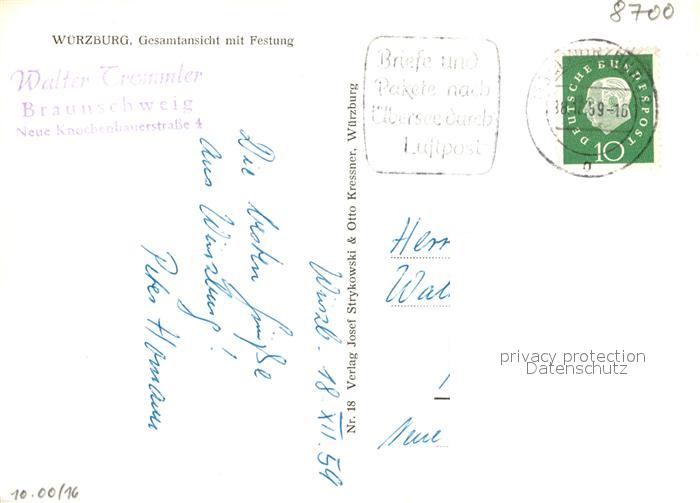 8700
WÜRZBURG, Gesamtansicht mit Festung
Walter Trommler
Braunschweig
Neue Knochenhauerstraße 4
Briefe und
Pakete nach
Übersee durch
Luftpost
DEUTSCHE BUNDESPOST
10
59-16
Würzb. 18.XII.59
Die besten Grüße
aus Würzburg!
Peter Homann
Nr. 18 Verlag Josef Strykowski & Otto Kressner, Würzburg
Herr
Wal
Neue
privacy protection
Datenschutz
10.00/16